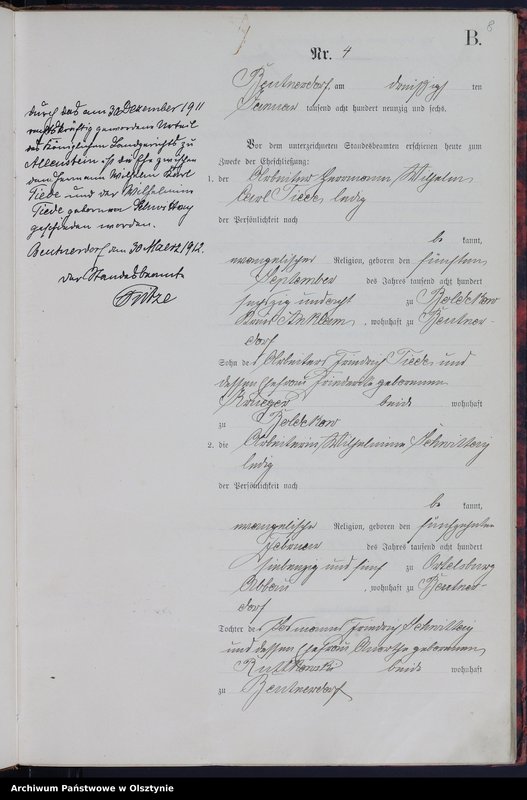 8
B.
Nr. 4
Beutnerdorf, am dreißigsten
Januar tausend acht hundert neunzig und sechs.
Vor dem unterzeichneten Standesbeamten erschienen heute zum
Zwecke der Eheschließung:
1. der Arbeiter Herrmann Wilhelm
Carl Tiede, ledig
der Persönlichkeit nach
be kannt,
evangelischer Religion, geboren den fünften
September des Jahres tausend acht hundert
sechszig und acht zu Boldekow
Kreis Anklam, wohnhaft zu Beutner-
dorf
Sohn des Arbeiters Friedrich Tiede und
dessen Ehefrau Friederike geborenen
Krueger beide wohnhaft
zu Boldekow
2. die Arbeiterin Wilhelmine
ledig
der Persönlichkeit nach
be kannt,
evangelische Religion, geboren den fünfzehnten
Februar des Jahres tausend acht hundert
siebenzig und fünf zu Ortelsburg
, wohnhaft zu Beutner-
dorf
Tochter des Friedrich
und dessen Ehefrau geborenen
beide wohnhaft
zu Beutnerdorf
Durch das am 30. Dezember 1911
rechtskräftig gewordene Urteil
des Königlichen Landgerichts zu
Allenstein ist die Ehe zwischen
dem Hermann Wilhelm Karl
Tiede und der Wilhelmine
Tiede geborenen
geschieden worden.
Beutnerdorf, den 30. Maerz 1912.
Der Standesbeamte
Archiwum Państwowe w Olsztynie